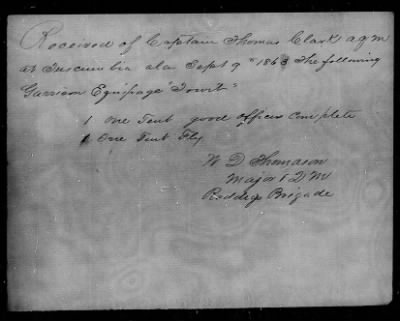 Received of Captain Thomas Clark aqm
at Tuscumbia ala Sept 9th 1863 The following
Garrison Equipage "Towit"
1 One Tent good officer complete
1 One Tent Fly
W D Thomason
Major & QM
Roddeys Brigade